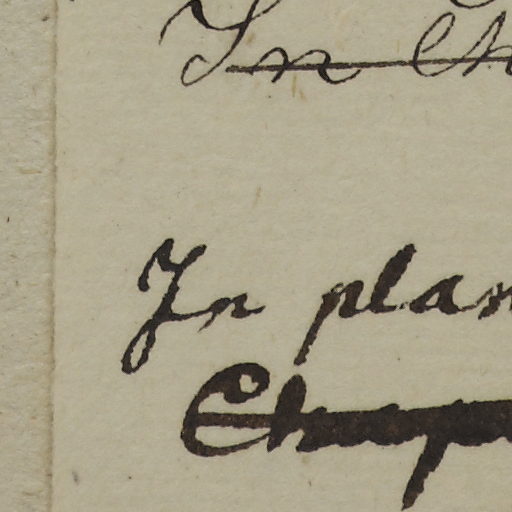 In Ch
In plan
Chap